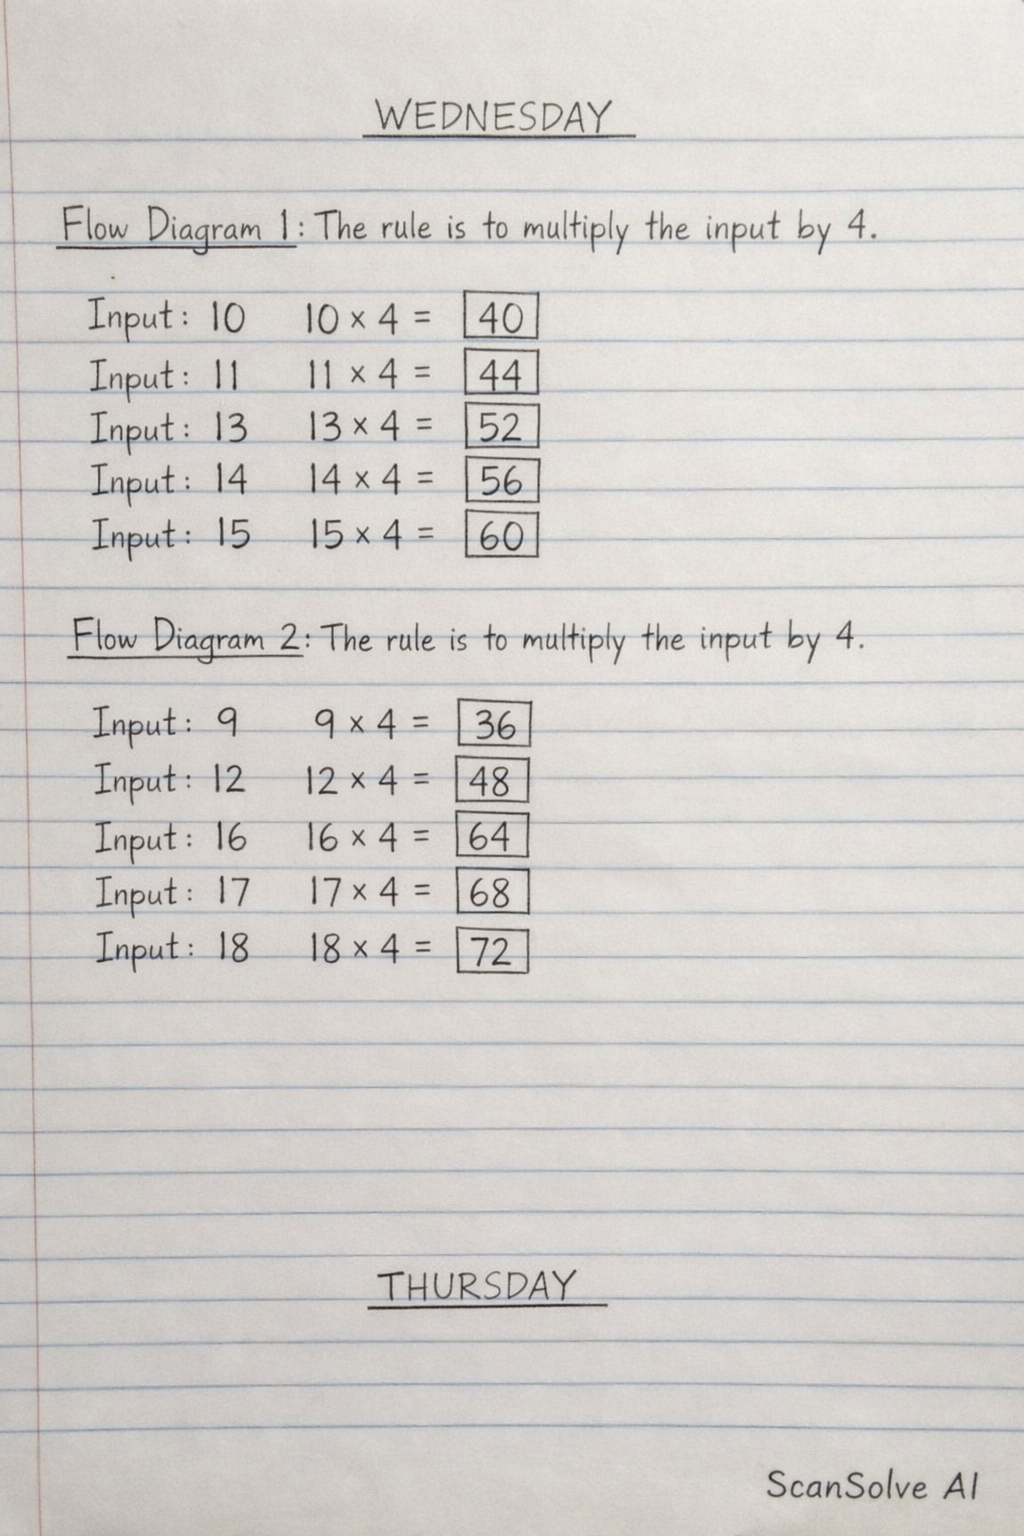 WEDNESDAY
Flow Diagram 1: The rule is to multiply the input by 4.
Input: 10 10 × 4 = 40
Input: 11 11 × 4 = 44
Input: 13 13 × 4 = 52
Input: 14 14 × 4 = 56
Input: 15 15 × 4 = 60
Flow Diagram 2: The rule is to multiply the input by 4.
Input: 9 9 × 4 = 36
Input: 12 12 × 4 = 48
Input: 16 16 × 4 = 64
Input: 17 17 × 4 = 68
Input: 18 18 × 4 = 72
THURSDAY
ScanSolve AI